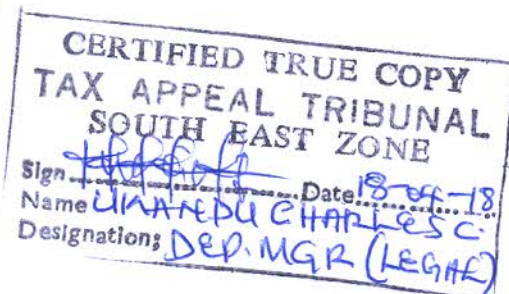 CERTIFIED TRUE COPY
TAX APPEAL TRIBUNAL
SOUTH EAST ZONE
Sign Date 18-04-18
Name UWANEDU CHARLES C.
Designation; DEP. MGR (LEGAL)